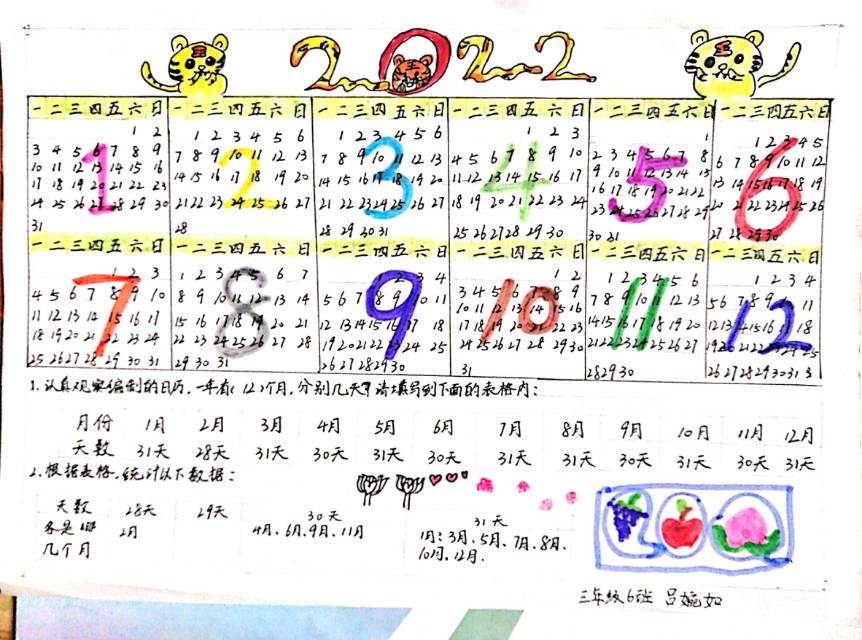 2022
一二三四五六日
1 2
3 4 5 6 7 8 9
10 11 12 13 14 15 16
17 18 19 20 21 22 23
24 25 26 27 28 29 30
31
1
一二三四五六日
1 2 3 4 5 6
7 8 9 10 11 12 13
14 15 16 17 18 19 20
21 22 23 24 25 26 27
28
2
一二三四五六日
1 2 3 4 5 6
7 8 9 10 11 12 13
14 15 16 17 18 19 20
21 22 23 24 25 26 27
28 29 30 31
3
一二三四五六日
1 2 3
4 5 6 7 8 9 10
11 12 13 14 15 16 17
18 19 20 21 22 23 24
25 26 27 28 29 30
4
一二三四五六日
1
2 3 4 5 6 7 8
9 10 11 12 13 14 15
16 17 18 19 20 21 22
23 24 25 26 27 28 29
30 31
5
一二三四五六日
1 2 3 4 5
6 7 8 9 10 11 12
13 14 15 16 17 18 19
20 21 22 23 24 25 26
27 28 29 30
6
一二三四五六日
1 2 3
4 5 6 7 8 9 10
11 12 13 14 15 16 17
18 19 20 21 22 23 24
25 26 27 28 29 30 31
7
一二三四五六日
1 2 3 4 5 6 7
8 9 10 11 12 13 14
15 16 17 18 19 20 21
22 23 24 25 26 27 28
29 30 31
8
一二三四五六日
1 2 3 4
5 6 7 8 9 10 11
12 13 14 15 16 17 18
19 20 21 22 23 24 25
26 27 28 29 30
9
一二三四五六日
1 2
3 4 5 6 7 8 9
10 11 12 13 14 15 16
17 18 19 20 21 22 23
24 25 26 27 28 29 30
31
10
一二三四五六日
1 2 3 4 5 6
7 8 9 10 11 12 13
14 15 16 17 18 19 20
21 22 23 24 25 26 27
28 29 30
11
一二三四五六日
1 2 3 4
5 6 7 8 9 10 11
12 13 14 15 16 17 18
19 20 21 22 23 24 25
26 27 28 29 30 31 3
12
1.认真观察编制的日历,一年有(12)个月,分别几天?请填写到下面的表格内:
月份 1月 2月 3月 4月 5月 6月 7月 8月 9月 10月 11月 12月
天数 31天 28天 31天 30天 31天 30天 31天 31天 30天 31天 30天 31天
2.根据表格,统计以下数据:
天数 28天 29天 30天 31天
各是哪几个月 2月 4月、6月、9月、11月 1月:3月、5月、7月、8月、10月、12月.
三年级6班 吕婉如